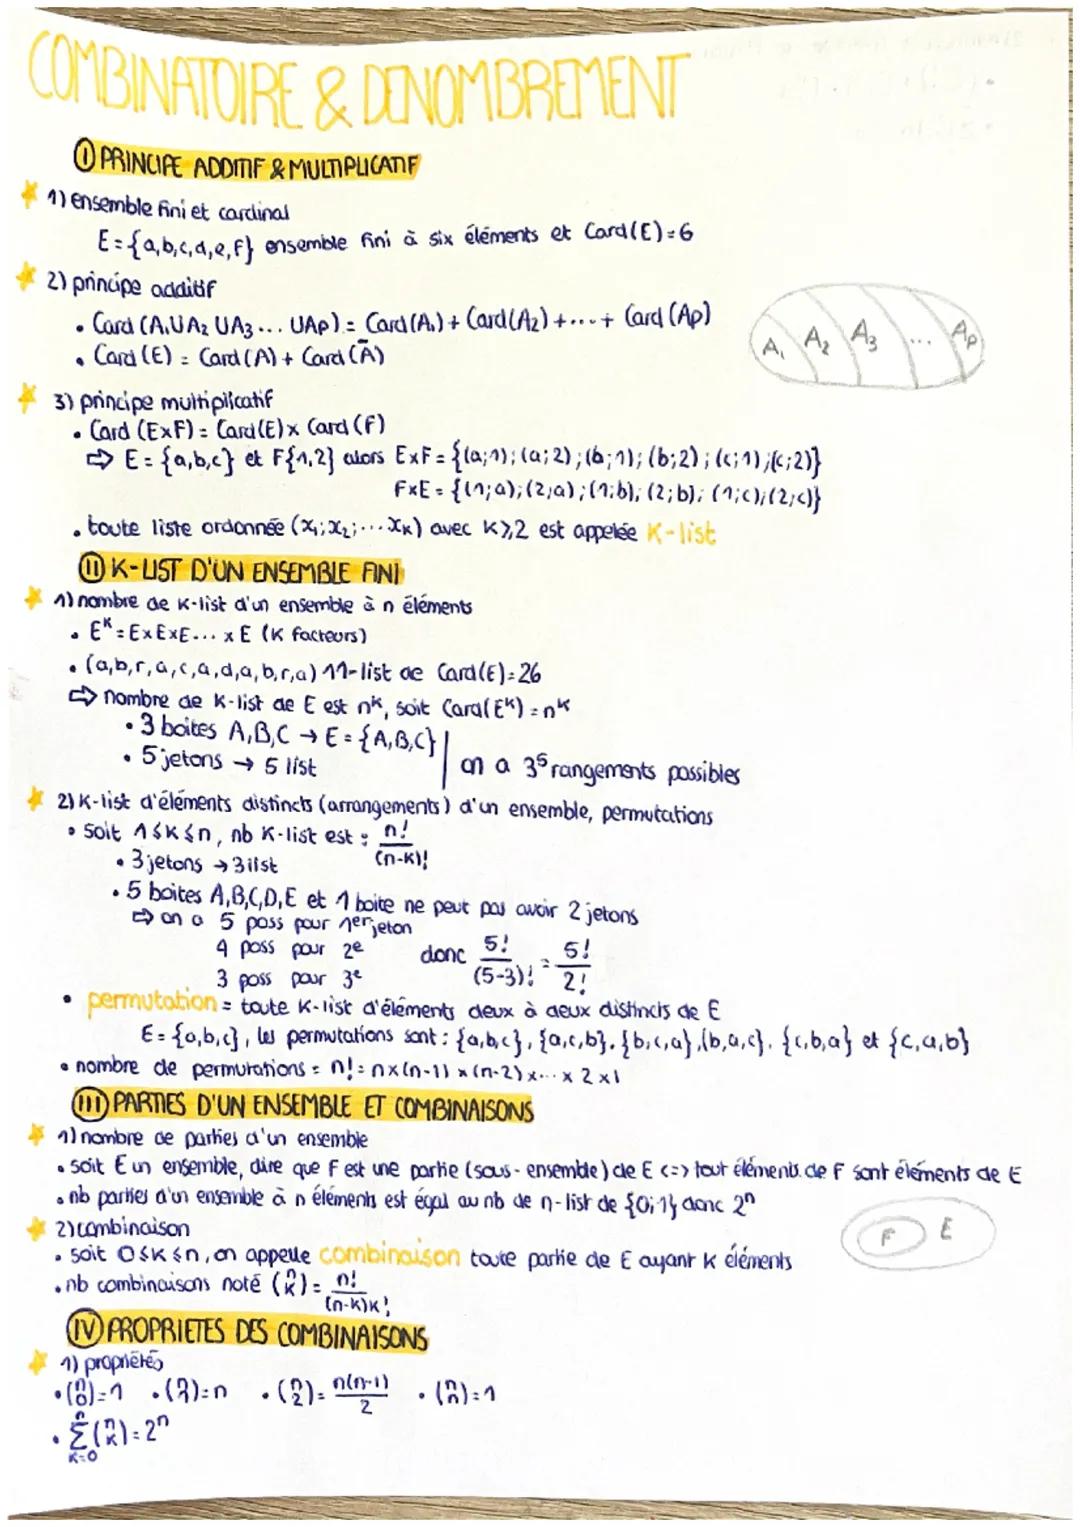 COMBINATOIRE & DENOMBREMENT
I PRINCIPE ADDITIF & MULTIPLICATIF
1) ensemble fini et cardinal
E = {a,b,c,d,e,f} ensemble fini à six éléments et Card(E)=6
2) principe additif
• Card (A₁UA₂ UA₃... UAp) = Card(A₁) + Card(A₂) +...+ Card (Ap)
• Card (E) = Card (A) + Card (Ā)
A₁ A₂ A₃ ... Ap
3) principe multiplicatif
• Card (ExF) = Card(E) x Card (F)
⇨ E = {a,b,c} et F{1,2} alors ExF = {(a;1);(a;2);(b;1);(b;2);(c;1);(c;2)}
FxE = {(1;a);(2;a);(1;b);(2;b);(1;c);(2;c)}
• toute liste ordonnée (x₁;x₂;...xₖ) avec K⩾2 est appelée K-list
II K-LIST D'UN ENSEMBLE FINI
1) nombre de K-list d'un ensemble à n éléments
• Eᴷ = ExExE... x E (K facteurs)
• (a,b,r,a,c,a,d,a,b,r,a) 11-list de Card(E)=26
⇨ nombre de K-list de E est nᴷ, soit Card(Eᴷ) = nᴷ
• 3 boites A,B,C → E = {A,B,C}
• 5 jetons → 5 list | on a 3⁵ rangements possibles
2) K-list d'éléments distincts (arrangements) d'un ensemble, permutations
• soit 1⩽K⩽n, nb K-list est : n!/(n-K)!
• 3 jetons → 3 list
• 5 boites A,B,C,D,E et 1 boite ne peut pas avoir 2 jetons
⇨ on a 5 poss pour 1er jeton
4 poss pour 2e donc 5!/(5-3)! = 5!/2!
3 poss pour 3e
• permutation = toute K-list d'éléments deux à deux distincts de E
E = {a,b,c}, les permutations sont : {a,b,c}, {a,c,b}, {b,c,a}, {b,a,c}, {c,b,a} et {c,a,b}
• nombre de permutations = n! = nx(n-1) x (n-2) x... x 2 x1
III PARTIES D'UN ENSEMBLE ET COMBINAISONS
1) nombre de parties d'un ensemble
• soit E un ensemble, dire que F est une partie (sous-ensemble) de E <=> tout éléments de F sont éléments de E
• nb parties d'un ensemble à n éléments est égal au nb de n-list de {0;1} donc 2ⁿ
F E
2) combinaison
• soit 0⩽K⩽n, on appelle combinaison toute partie de E ayant K éléments
• nb combinaisons noté (n K) = n!/(n-K)K!
IV PROPRIETES DES COMBINAISONS
1) propriétés
• (n 0)=1 • (n 1)=n • (n 2)= n(n-1)/2 • (n n)=1
• Σ K=0 n (n K) = 2ⁿ